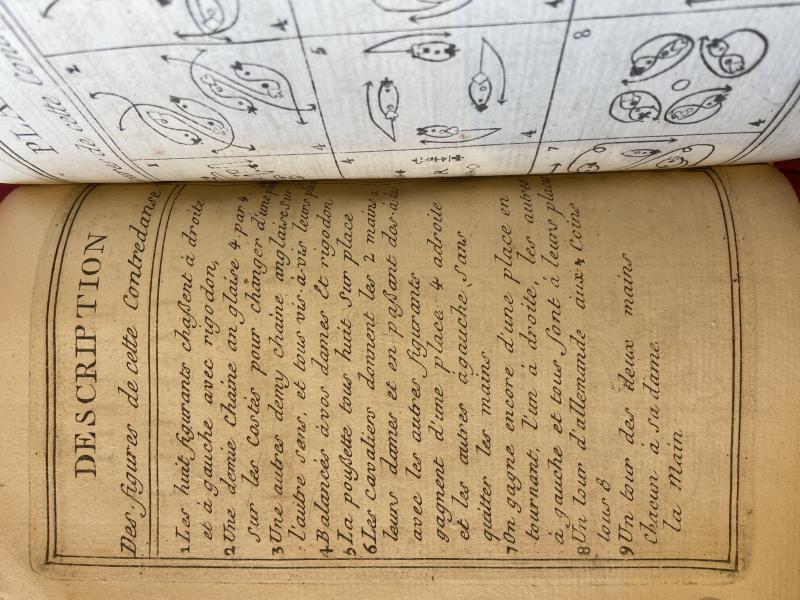 DESCRIPTION
Des figures de cette Contredanse
1 Les huit figurants chaßent à droite
et à gauche avec rigodon,
2 Une demie Chaine anglaise 4 par 4
sur les Costés pour changer d'une
3 Une autres demy chaine anglaise sur
l'autre sens, et tous vis-à-vis leurs
4 Balancés àvos dames Et rigodon
5 La poußette tous huit sur place
6 Les cavaliers donnent les 2 mains a
leurs dames et en paßant dos-à-dos
avec les autres figurants
gagnent d'une place 4 adroite
et les autres àgauche sans
quitter les mains
7 On gagne encore d'une place en
tournant, l'un à droite, les autres
à gauche et tous sont à leurs place
8 Un tour d'allemande aux 4 Coins
tous 8
9 Un tour des deux mains
Chacun à sa dame.
la Main
PLA
cette
1
2
4
4
5
4
4
7
8
4